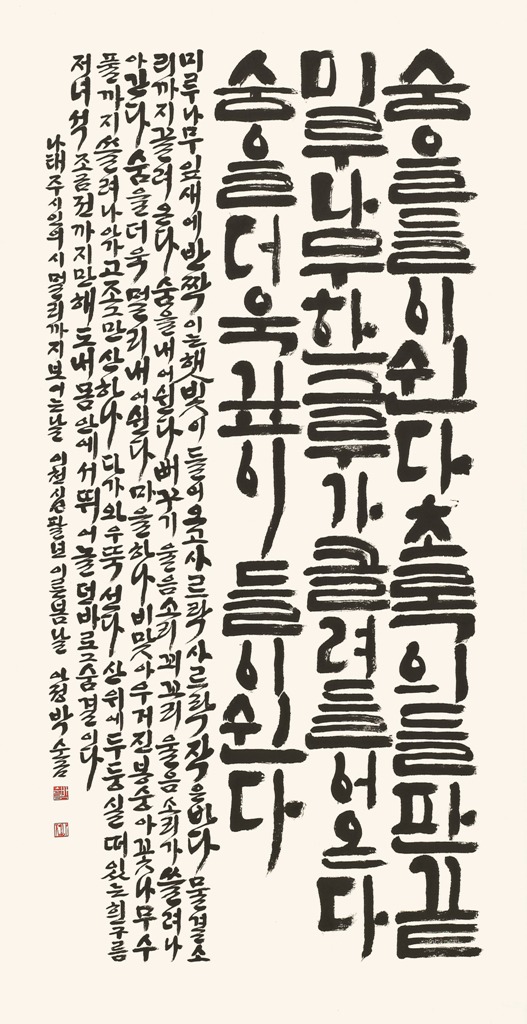 숨을 들이쉰다 초록의 들판 끝
미루나무 한 그루가 끌려 들어온다
숨을 더욱 깊이 들이쉰다
미루나무 잎새에 반짝이는 햇빛이 들어오고 사르락 사르락 작은 바다 물결 소
리까지 끌려 온다 숨을 내어쉰다 뻐꾸기 울음소리 꾀꼬리 울음소리가 쓸려 나
아간다 숨을 더욱 멀리 내어쉰다 마을 하나 비 맞아 우거진 봉숭아꽃나무 수
풀까지 쓸려 나아가고 조그만 산 하나 다가와 우뚝 선다 산 위에 두둥실 떠 있는 흰구름
저 녀석 조금 전까지만 해도 내 몸 안에서 뛰어놀던 바로 그 숨결이다
나태주시인의 시 멀리까지 보이는 날 이천십팔년 이른봄날 박